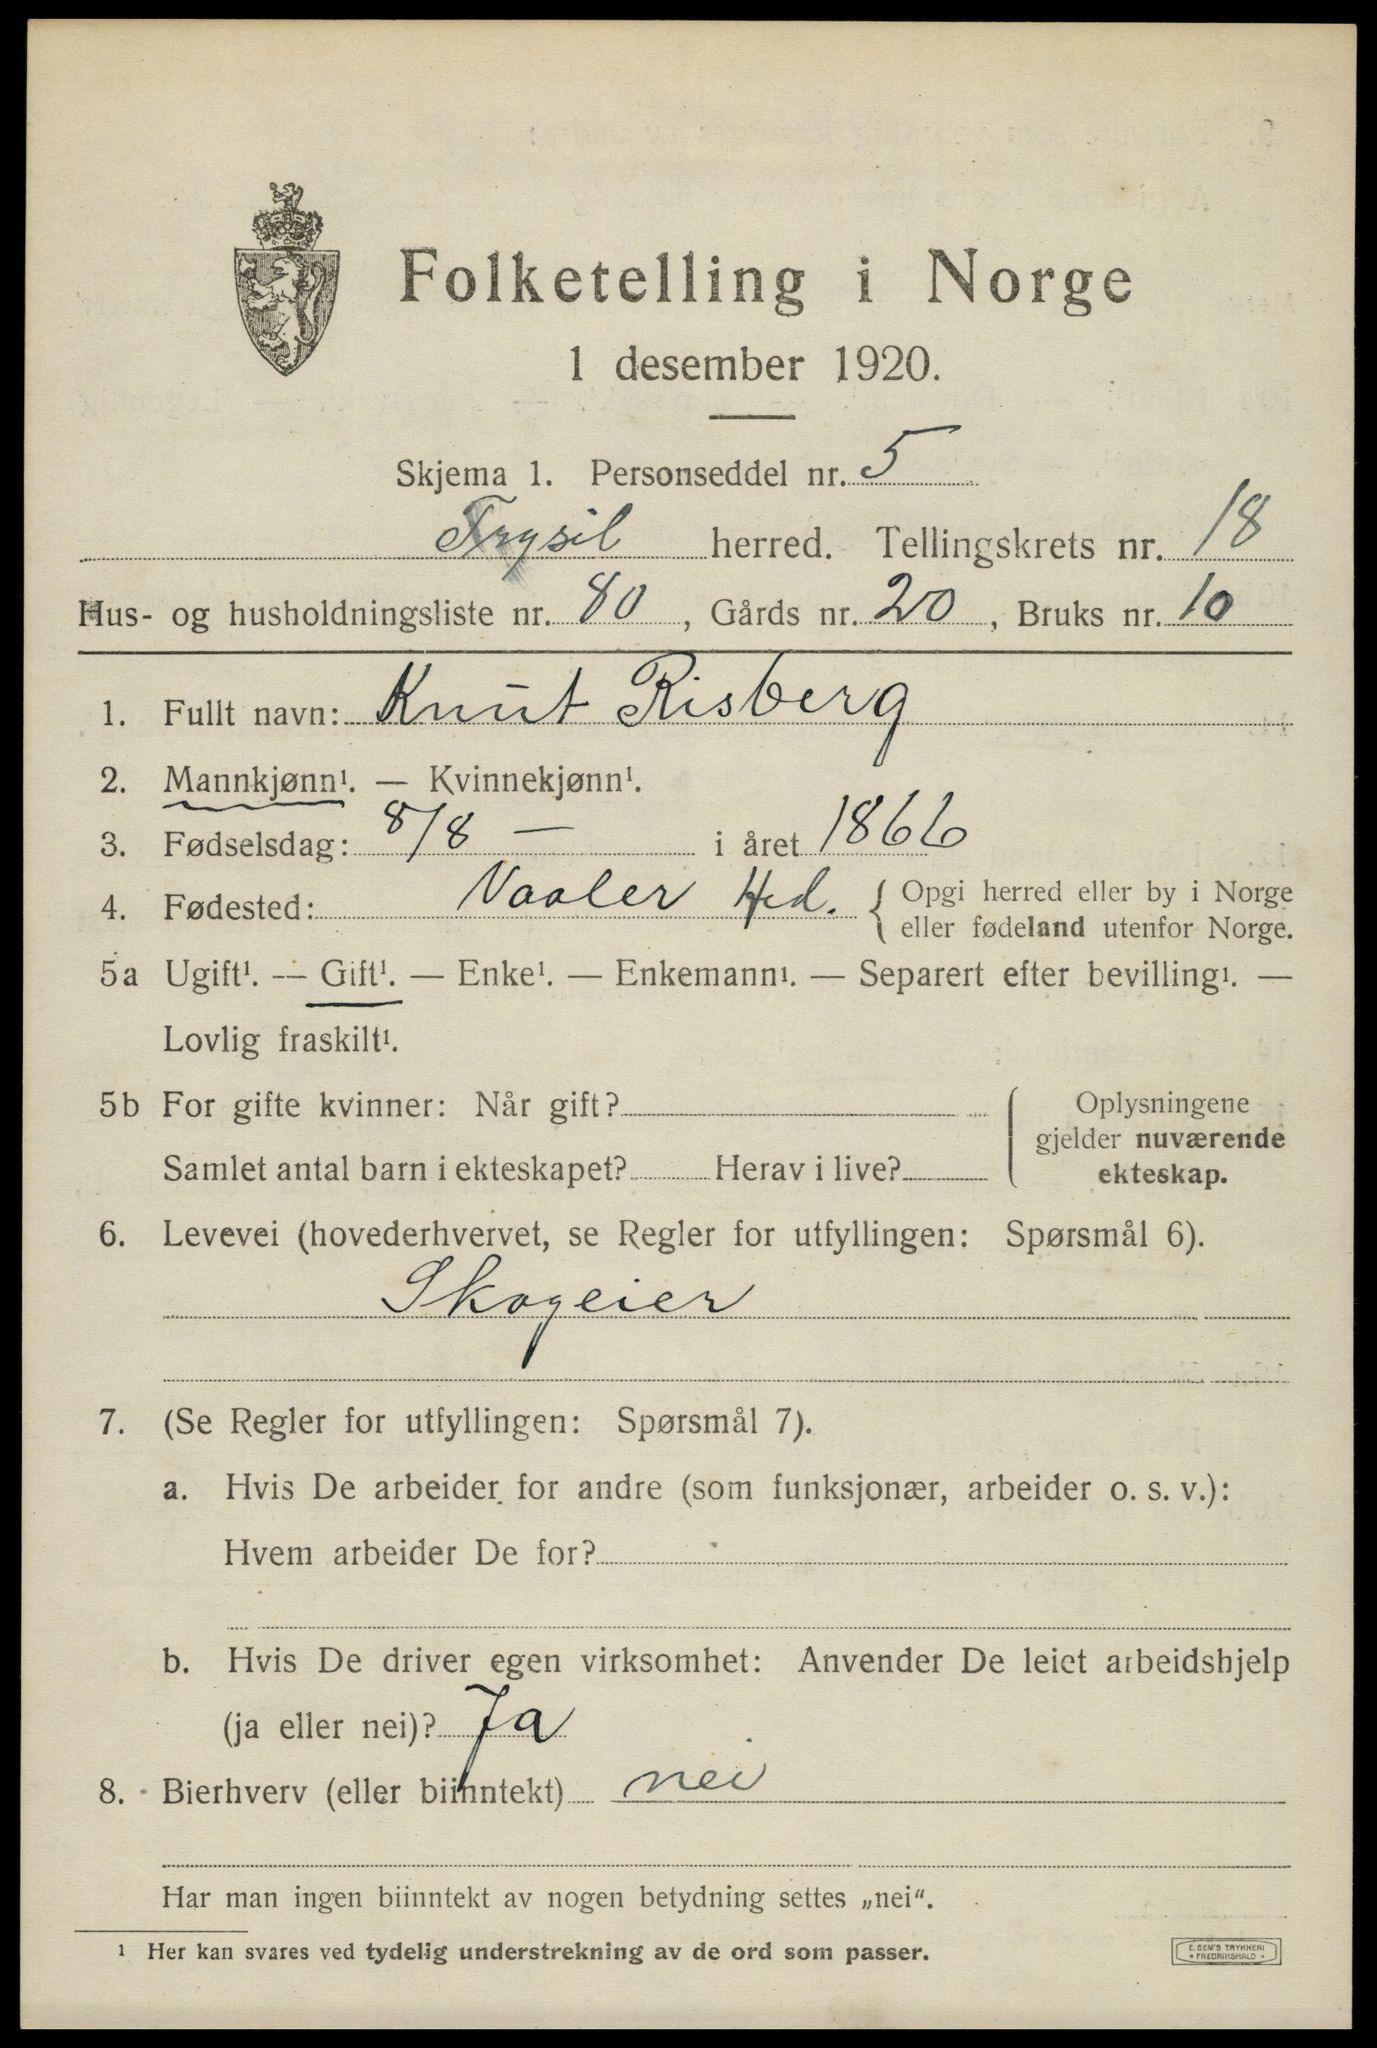 Folketelling i Norge
1 desember 1920.
Skjema 1. Personseddel nr. 5
Trysil herred. Tellingskrets nr. 18
Hus- og husholdningsliste nr. 80, Gårds nr. 20, Bruks nr. 10
1. Fullt navn: Knut Risberg
2. Mannkjønn¹. — Kvinnekjønn¹.
3. Fødselsdag: 8/8 — i året 1866
4. Fødested: Vaaler Hed. { Opgi herred eller by i Norge
eller fødeland utenfor Norge.
5a Ugift¹. — Gift¹. — Enke¹. — Enkemann¹. — Separert efter bevilling¹. —
Lovlig fraskilt¹.
5b For gifte kvinner: Når gift?
Samlet antal barn i ekteskapet? Herav i live?
Oplysningene
gjelder nuværende
ekteskap.
6. Levevei (hovederhvervet, se Regler for utfyllingen: Spørsmål 6).
Skogeier
7. (Se Regler for utfyllingen: Spørsmål 7).
a. Hvis De arbeider for andre (som funksjonær, arbeider o. s. v.):
Hvem arbeider De for?
b. Hvis De driver egen virksomhet: Anvender De leiet arbeidshjelp
(ja eller nei)? Ja
8. Bierhverv (eller biinntekt) nei
Har man ingen biinntekt av nogen betydning settes „nei“.
¹ Her kan svares ved tydelig understrekning av de ord som passer.
E. SEM'S TRYKKERI
• FREDRIKSHALD •